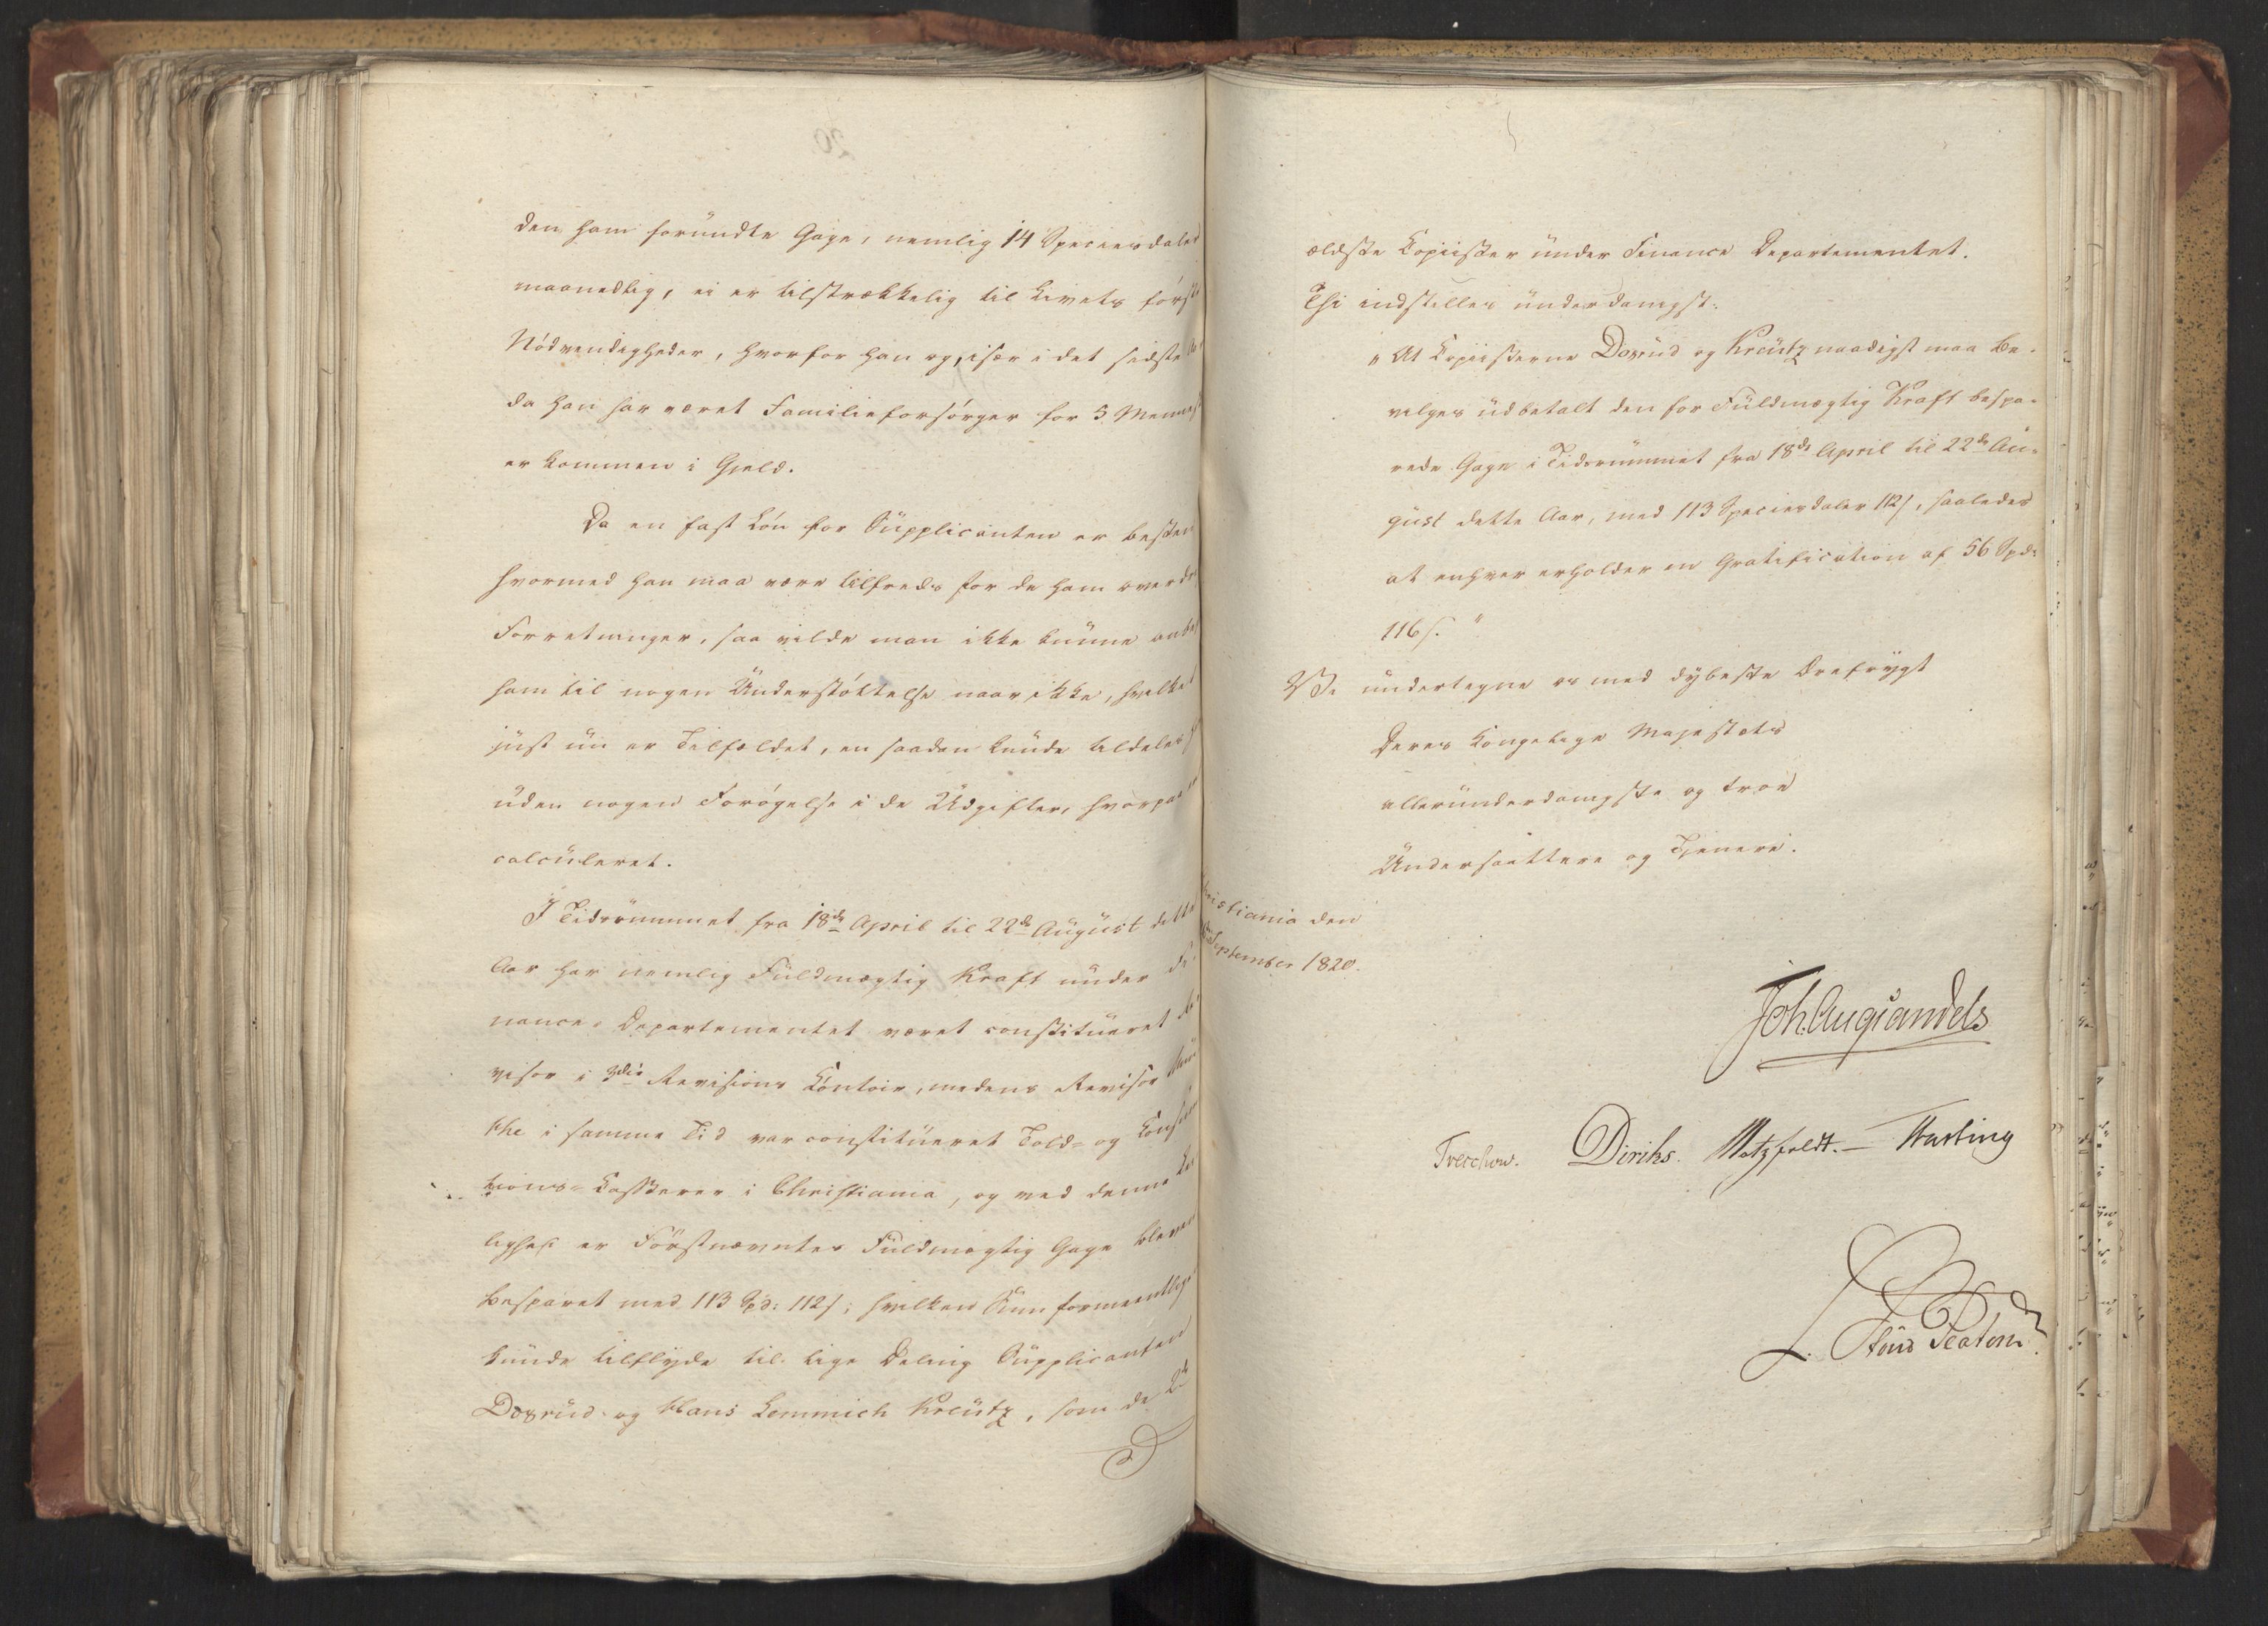 den ham forundte Gage, nemlig 14 Speciesdaler
maanedlig, ei er tilstrækkelig til Livets første
Nødvendigheder, hvorfor han og, især i det sidste
da han har været Familieforsørger for 3 Mennesk
er kommen i Gjeld.
Da en fast Løn for Supplicanten er bestem
hvormed han maa være tilfreds for de ham overdr
Forretninger, saa vilde man ikke kunne anbef
ham til nogen Understøttelse naar ikke, hvilket
just nu er Tilfældet, en saadan kunde tildeles
uden nogen Forøgelse i de Udgifter, hvorpaa er
calculeret.
I Tidsrummet fra 18de April til 22de August dette
Aar har nemlig Fuldmægtig Kraft under Fi
nance-Departementet været constitueret Re
visor i 3die Revisions Contoir, medens Revisor
the i samme Tid var constitueret Told- og Consum
tions-Casserer i Christiania, og ved denne Lei
lighed er Førstnævntes Fuldmægtig Gage bleven
besparet med 113 Spd: 112 s; hvilken Sum formeentlig
kunde tilflyde til lige Deling Supplicanten
Dogrud og Hans Lemmich Kreutz, som de 2de
ældste Copiister under Finance Departementet.
Thi indstilles underdanigst:
"At Copiisterne Dogrud og Kreutz naadigst maa be-
vilges udbetalt den for Fuldmægtig Kraft bespa-
rede Gage i Tidsrummet fra 18de April til 22de Au-
gust dette Aar, med 113 Speciesdaler 112 s, saaledes
at enhver erholder en Gratification af 56 Spd:
116 s."
Vi undertegne os med dybeste Ærefrygt
Deres Kongelige Majestæts
allerunderdanigste og troe
Undersaattere og Tjenere.
Christiania den
September 1820.
Joh. Aug Sandels
Treschow. Diriks. Motzfeldt. — Fasting